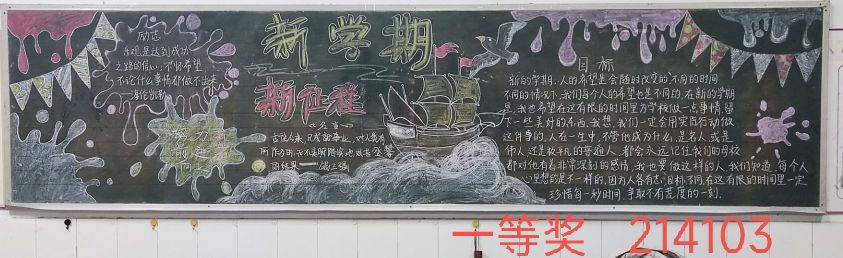 励志
乐观是达到成功
之路的信心,不怀希望
不论什么事情都做不出来
海伦凯勒
努力
前进
新学期
新征程
奋斗
古往今来,凡成就事业,对人类有
所作为的,无不是脚踏实地艰苦登攀
的结果——钱三强
目标
新的学期,人的希望是会随时改变的,不同的时间
不同的情况下,我们每个人的希望也是不同的,在新的学期
里,我也希望在这有限的时间里为学校做一点事情,留
下一些美好的东西,我想,我们一定会用实际行动做
这件事的,人在一生中,不管他成为什么,是名人,或是
伟人,还是极平凡的普通人,都会永远记住我们的母校
都对他有着非常深刻的感情,我也要做这样的人,我们知道,每个人
心里想的是不一样的,因为人各有志,目标不同,在这有限的时间里一定
珍惜每一秒时间,争取不荒度的一刻.
一等奖 214103